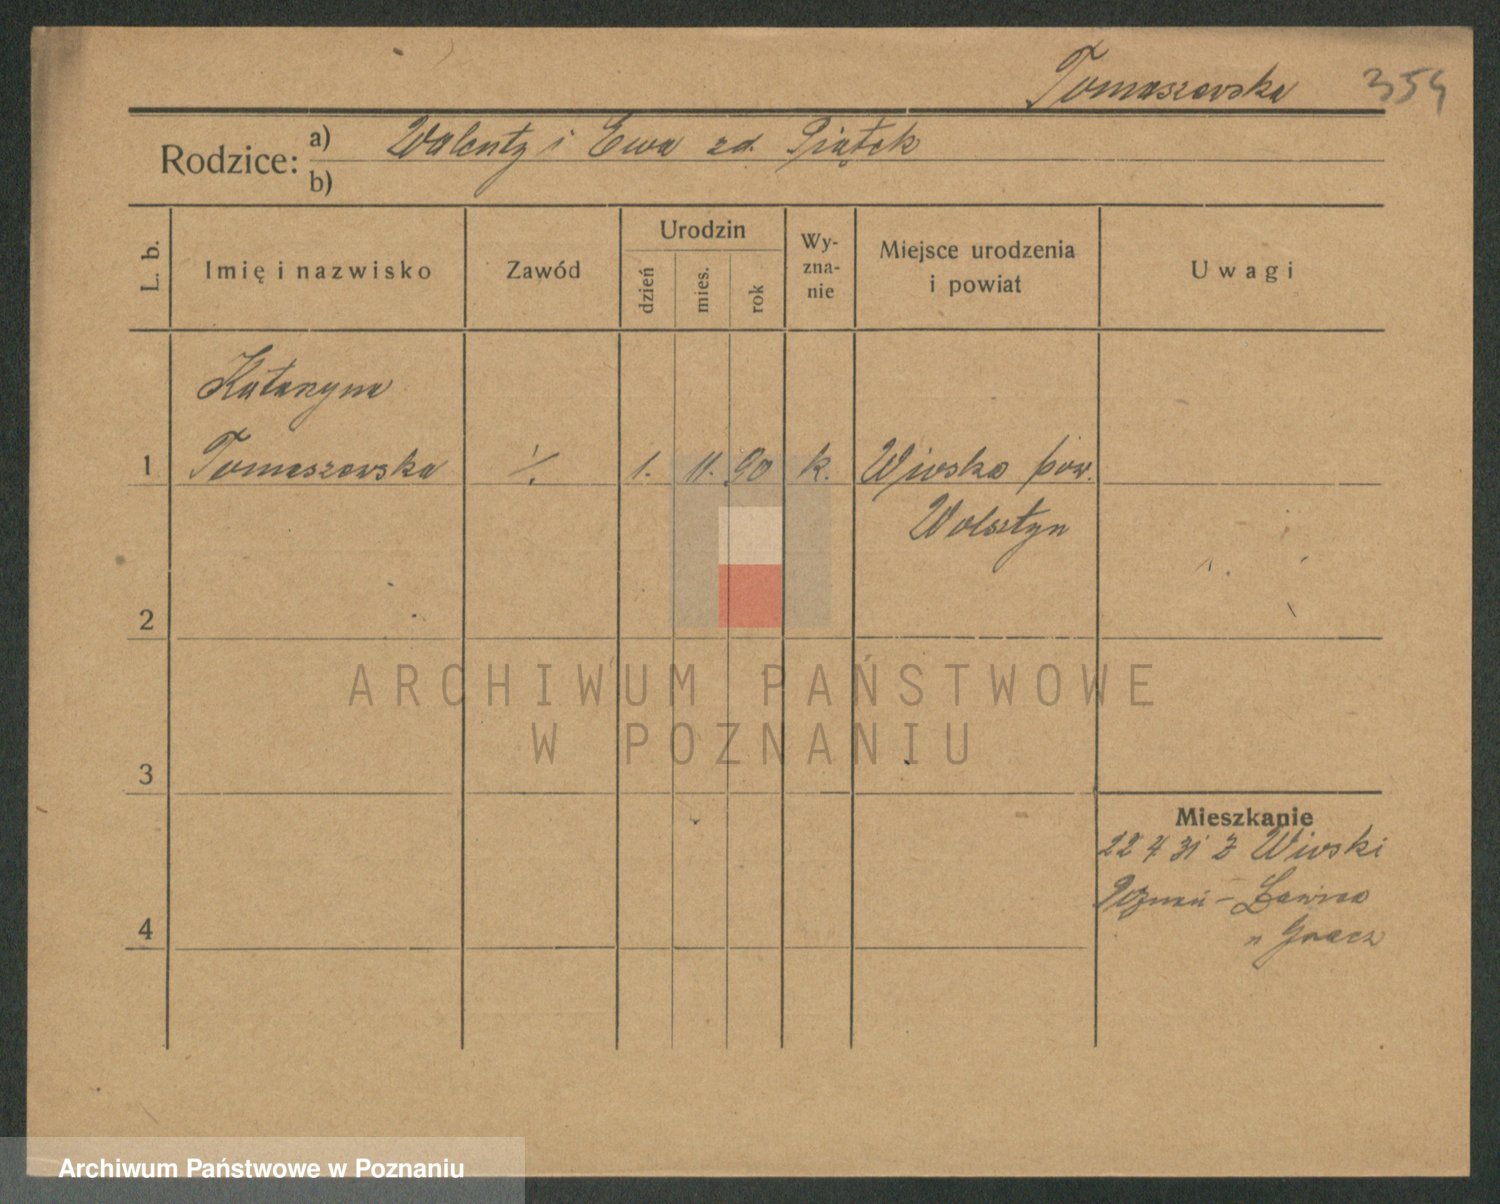 Tomaszewska 354
Rodzice:
a) Walenty i Ewa zd. Piątek
b)
L. b.
Imię i nazwisko
Zawód
Urodzin
dzień
mies.
rok
Wy-
zna-
nie
Miejsce urodzenia
i powiat
Uwagi
Katarzyna
1 Tomaszewska ./. 1. 11. 90 k. Wiosko pow.
Wolsztyn
2
3
4
Mieszkanie
22 4 31 z Wioski
Poznań - Ławica
ARCHIWUM PAŃSTWOWE
W POZNANIU
Archiwum Państwowe w Poznaniu